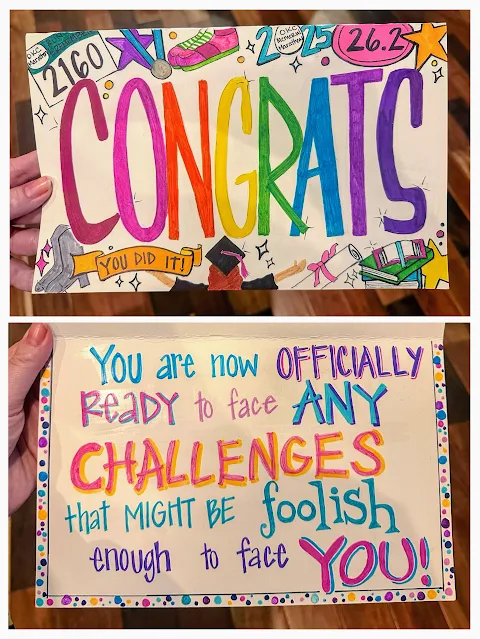 OKC
Memorial
Marathon
2160
2025
OKC
Memorial
Marathon
26.2
CONGRATS
YOU DID IT!
You are now OFFICIALLY
READY to face ANY
CHALLENGES
that MIGHT BE foolish
enough to face YOU!